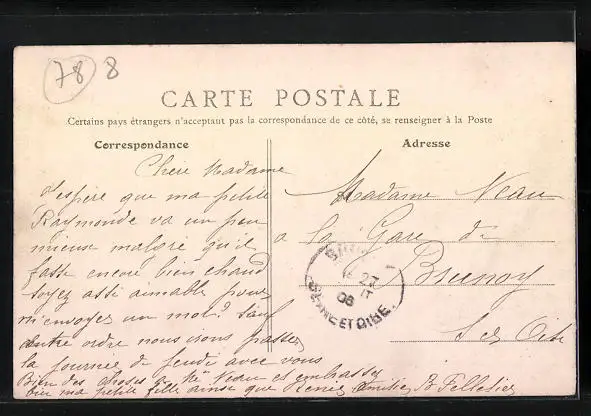 78 8
CARTE POSTALE
Certains pays étrangers n'acceptant pas la correspondance de ce côté, se renseigner à la Poste
Correspondance
Adresse
Chère Madame
J'espère que ma petite
Raymonde va un peu
mieux malgré qu'il
fasse encore bien chaud
soyez assi aimable pour
m'envoyez un mot? Sauf
autre ordre nous irons passer
la journée de jeudi avec vous
Bien des choses à Mr Neau et embrasser
bien ma petite fille ainsi que Renée Emilie B Pelletier
Madame Neau
a la Gare de
Brunoy
S et Oise
27
06
SEINE ET OISE